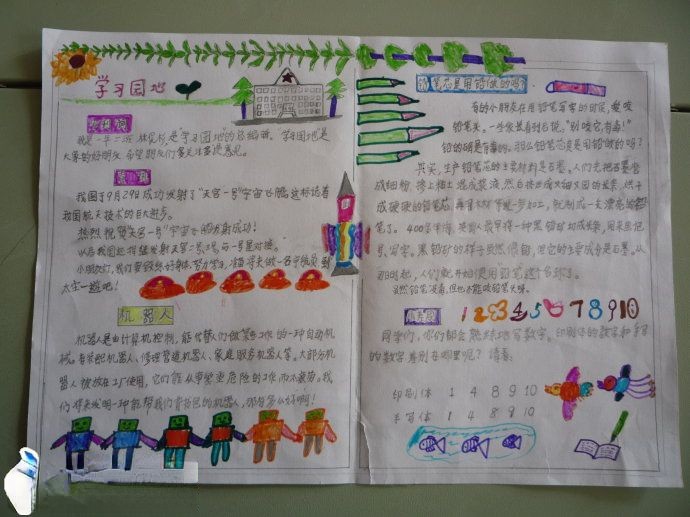 学习园地
我是一年二班
是学习园地的总编辑。学习园地是
大家的好朋友,希望朋友们多关注多提意见。
我国于9月29日成功发射了“天宫一号”宇宙飞船。这标志着
我国航天技术的巨大进步。
热烈祝贺天宫一号宇宙飞船发射成功!
以后我国还将陆续发射天宫二号、三号,与一号星对接。
小朋友们,我们要锻炼好身体,努力学习,准备将来做一名宇航员到
太空一遊吧!
机器人
机器人是由计算机控制,能代替人们做某些工作的一种自动机
械。有采掘机器人、修理管道机器人、家庭服务机器人等。大部分机
器人被放在工厂使用,它们能从事繁重危险的工作而不疲劳。我
们将来发明一种能帮我们背书包的机器人,那有多么好啊!
铅笔芯是用铅做的吗?
有的小朋友在用铅笔写字的时候,爱咬
铅笔头。一些家长看到后说:“别咬它,有毒!”
铅的确是有毒的。那么铅笔芯真是用铅做的吗?
其实,生产铅笔芯的主要材料是石墨。人们先把石墨磨
成细粉,掺上粘土,混成浆液,然后挤压成又细又圆的长条,烘干
成硬硬的铅笔芯,再穿木杆等进一步加工,就制成一支漂亮的铅
笔了。400多年前,英国人最早将一种黑铅切成长条,用来画记
号、写字。黑铅矿的样子虽然像铅,但它的主要成分是石墨。从
那时起,人们就开始使用铅笔这个名称了。
虽然铅笔没毒,但也不能咬铅笔头呀。
129345678910
同学们,你们都会熟练地写数字。印刷体的数字和手写
的数字差别在哪里呢?请看:
印刷体 1 4 8 9 10
手写体 1 4 8 9 10